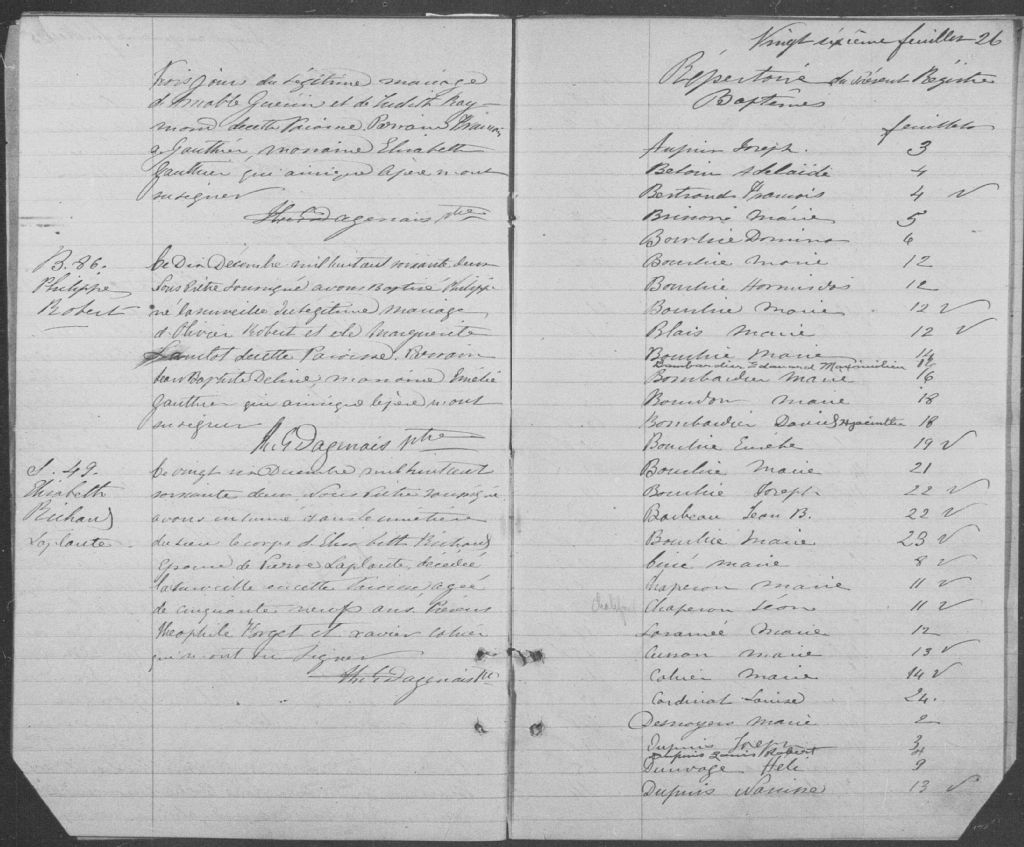 trois jour du légitime mariage
d'Amable Guerin et de Judith Ray-
mond de cette Paroisse Parrain François
Gauthier, marraine Elisabeth
Gauthier qui ainsi que le père n'ont
su signer
Ths G Dagenais ptre
B. 86.
Philippe
Robert
Le Dix Décembre mil huit cent soixante deux
Nous Prêtre soussigné avons Baptisé Philippe
né la veille du légitime mariage
d'Olivier Robert et de Marguerite
de cette Paroisse. Parrain
Jean Baptiste marraine Emélie
Gauthier qui ainsi que le père n'ont
su signer
Ths G Dagenais ptre
S. 49.
Elisabeth
Richard
Laplante
Le vingt un Décembre mil huit cent
soixante deux, Nous Prêtre soussigné
avons inhumé dans le cimetière
du lieu le corps d'Elisabeth Richard
Epouse de Pierre Laplante, décédée
la veille en cette Paroisse agée
de cinquante neuf ans Présens
Théophile Forget et Xavier Cahier
qui n'ont su signer
Ths G Dagenais Ptre
Vingt sixième feuillet 26
Répertoire du présent Régistre
Baptêmes
feuillets
Aupin Joseph. 3
Adelaïde 4
Bertrand François 4 V
Brisson Marie 5
Bourhie Domina 6
Bourhie Marie 12
Bourhie Hormisdas 12
Bourhie Marie 12 V
Blais Marie 12 V
Bourhie Marie 14
Bombardier Edouard Maximilien 12
Bombardier Marie 16
Bourdon Marie 18
Bombardier David Hyacinthe 18
Bourhie 19 V
Bourhie Marie 21
Bourhie Joseph 22 V
Barbeau Jean B. 22 V
Bourhie Marie 23 V
Marie 8 V
Chaperon Marie 11 V
Chaperon Léon 11 V
Marie 12
Cusson Marie 13 V
Cahier Marie 14 V
Cardinal Louise 24.
Desnoyers Marie 2
Dupuis Joseph 3
Dupuis Louis Robert 4
Héli 9
Dupuis Narcisse 13 V